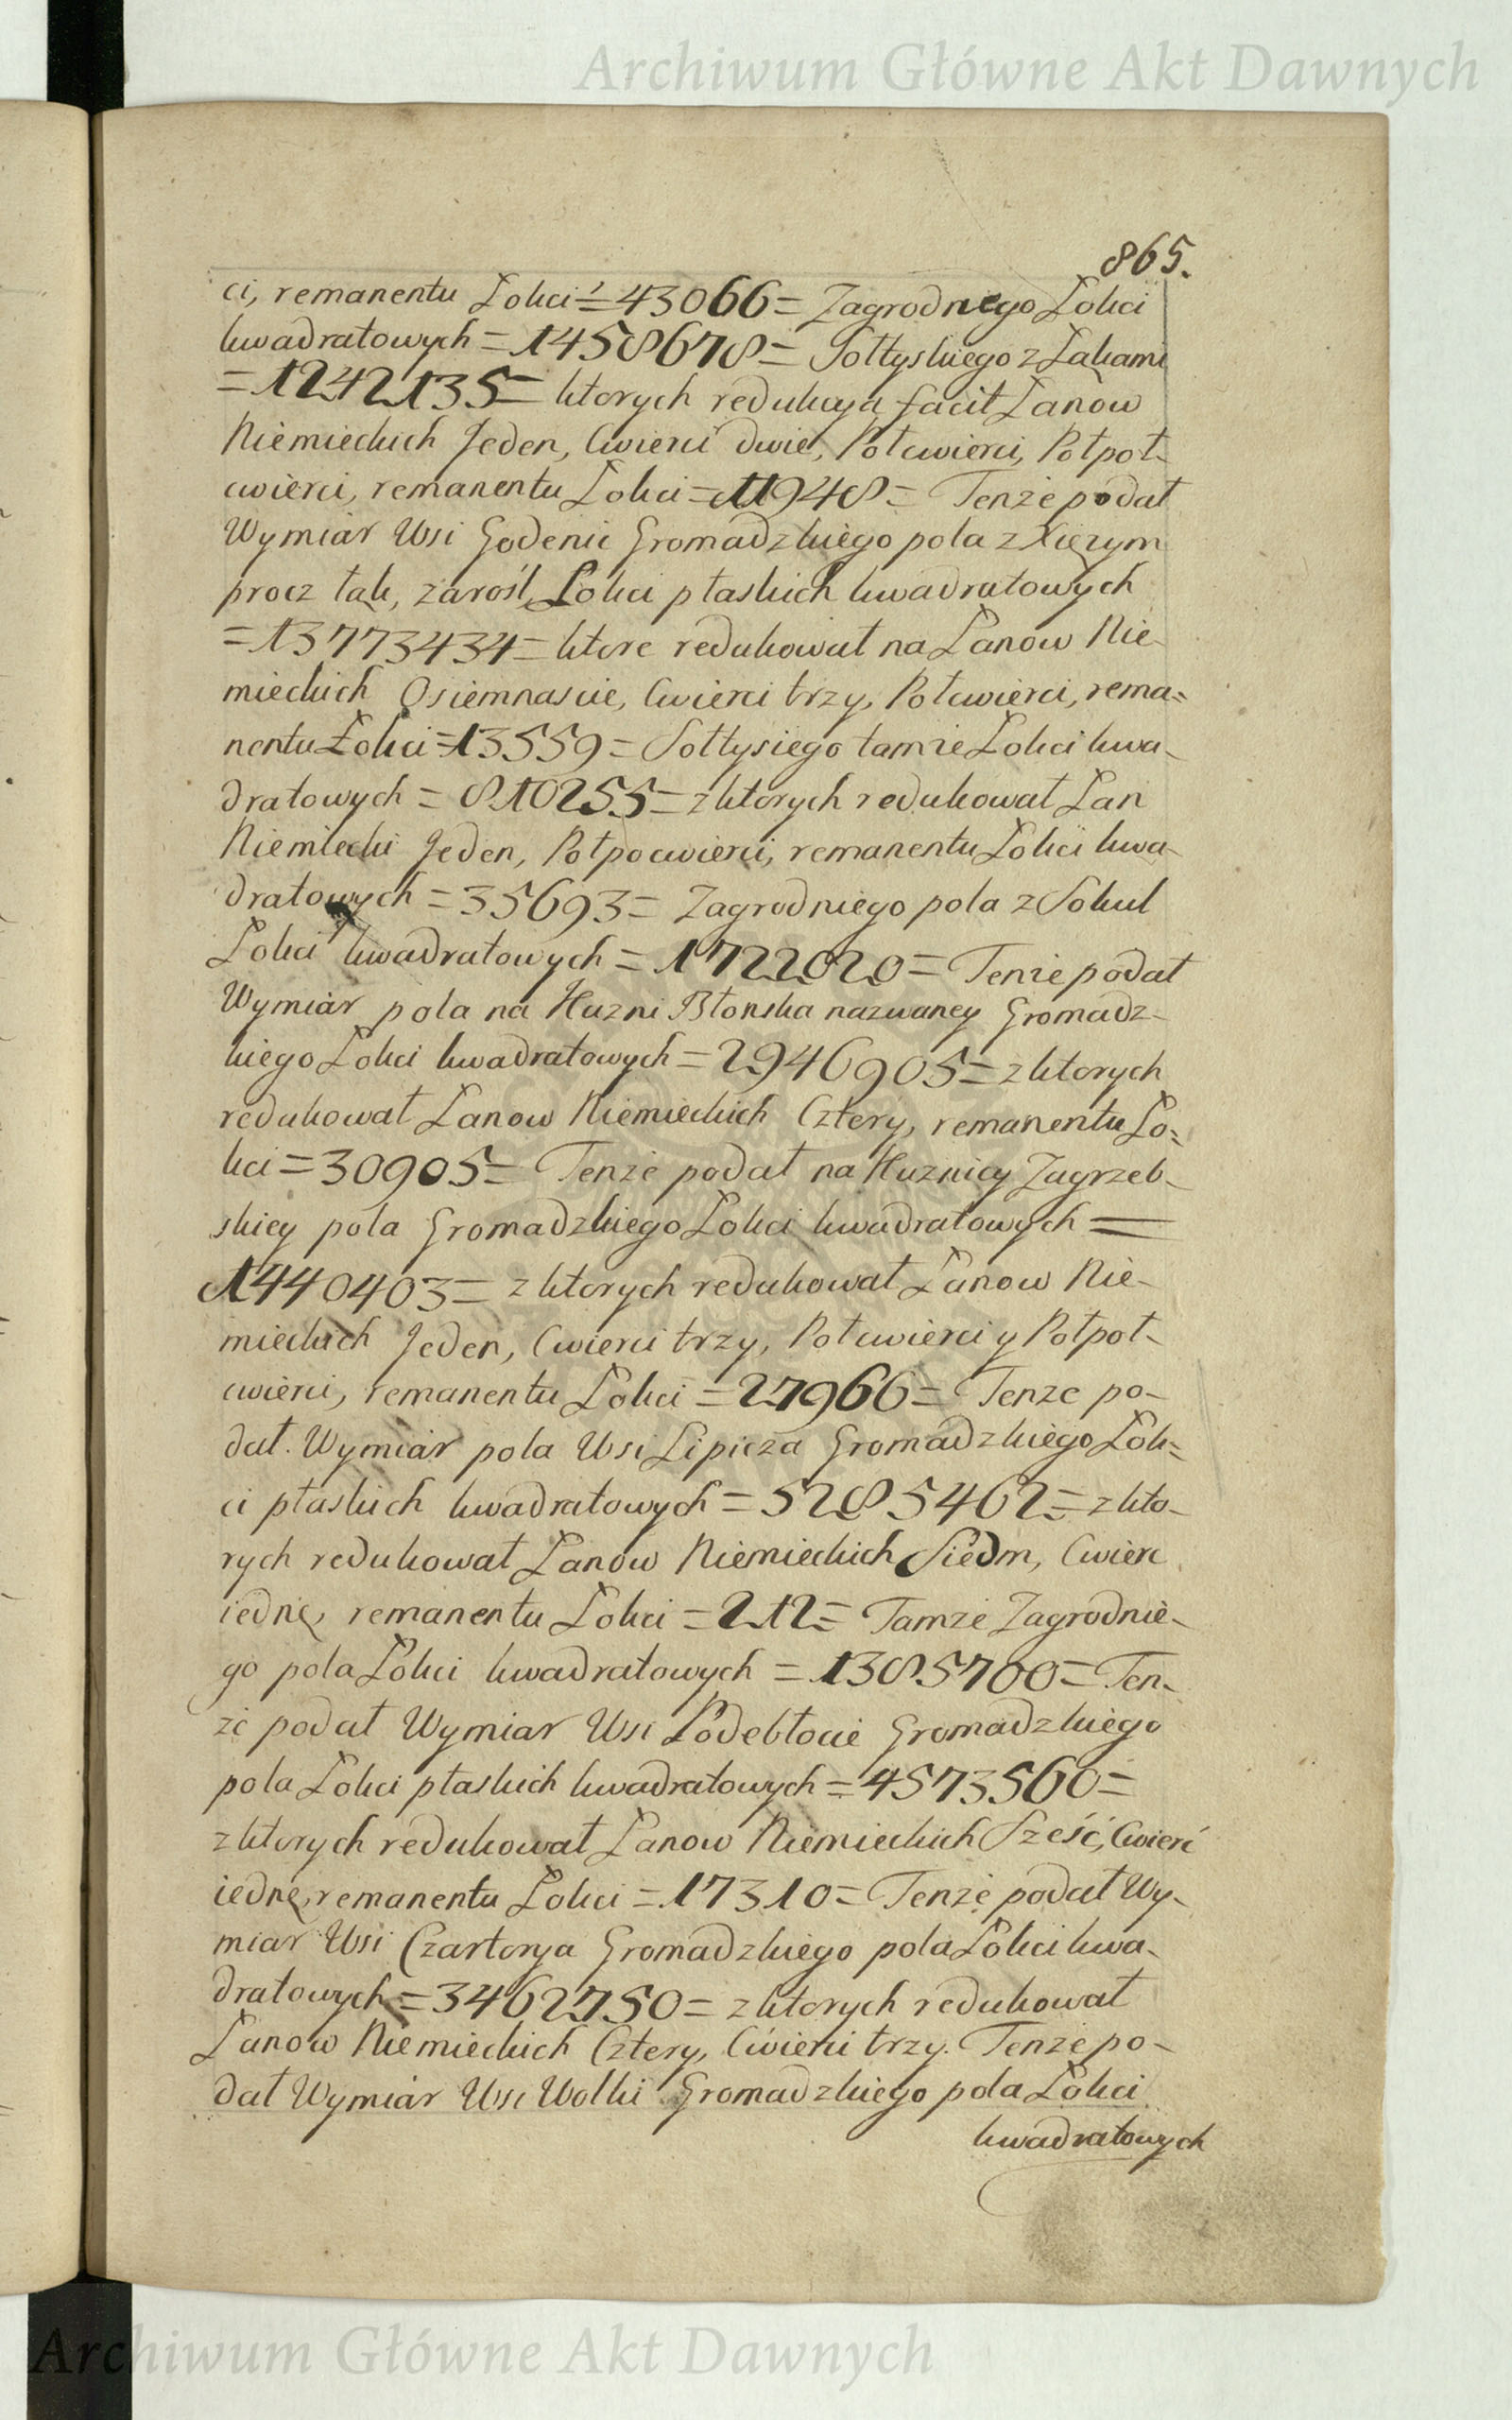 Archiwum Główne Akt Dawnych
865.
ci, remanentu Łokci = 43066 = Zagrodnego Łokci
kwadratowych = 1458678 = Sołtyskiego z Łąkami
= 1242135 = ktorych redukcya facit Łanow
Niemieckich Jeden, Cwierci dwie, Połcwierci, Połpoł-
cwierci, remanentu Łokci = 11948 = Tenże podał
Wymiar Wsi Godenic Gromadzkiego pola z Xięzym
procz łąk, zarośl, Łokci płaskich kwadratowych
= 13773434 = ktore redukował na Łanow Nie-
mieckich Osiemnascie, Cwierci trzy, Połcwierci, rema=
nentu Łokci = 13559 = Sołtysiego tamże Łokci kwa-
dratowych = 810255 = z ktorych redukował Łan
Niemiecki Jeden, Połpocwierci, remanentu Łokci kwa-
dratowych = 35693 = Zagrodniego pola z Sokul
Łokci kwadratowych = 1722020 = Tenże podał
Wymiar pola na Kuzni Błonska nazwaney Gromadz-
kiego Łokci kwadratowych = 2946905 = z ktorych
redukował Łanow Niemieckich Cztery, remanentu Ło=
kci = 30905 = Tenże podał na Kuznicy Zagrzeb-
skiey pola Gromadzkiego Łokci kwadratowych =
1440403 = z ktorych redukował Łanow Nie-
mieckich Jeden, Cwierci trzy, Połcwierci y Połpoł-
cwierci, remanentu Łokci = 27966 = Tenze po-
dał. Wymiar pola Wsi Lipicza Gromadzkiego Łok=
ci płaskich kwadratowych = 5285462 = z kto-
rych redukował Łanow Niemieckich Siedm, Cwierc
iednę, remanentu Łokci = 212 = Tamże Zagrodnie-
go pola Łokci kwadratowych = 1385700 = Ten-
że podał Wymiar Wsi Podebłocie Gromadzkiego
pola Łokci płaskich kwadratowych = 4573560 =
z ktorych redukował Łanow Niemieckich Sześć, Cwierć
iednę, remanentu Łokci = 17310 = Tenże podał Wy-
miar Wsi Czartorya Gromadzkiego pola Łokci kwa-
dratowych = 3462750 = z ktorych redukował
Łanow Niemieckich Cztery, Cwierci trzy. Tenże po-
dał Wymiar Wsi Wolki Gromadzkiego pola Łokci
kwadratowych
Archiwum Główne Akt Dawnych